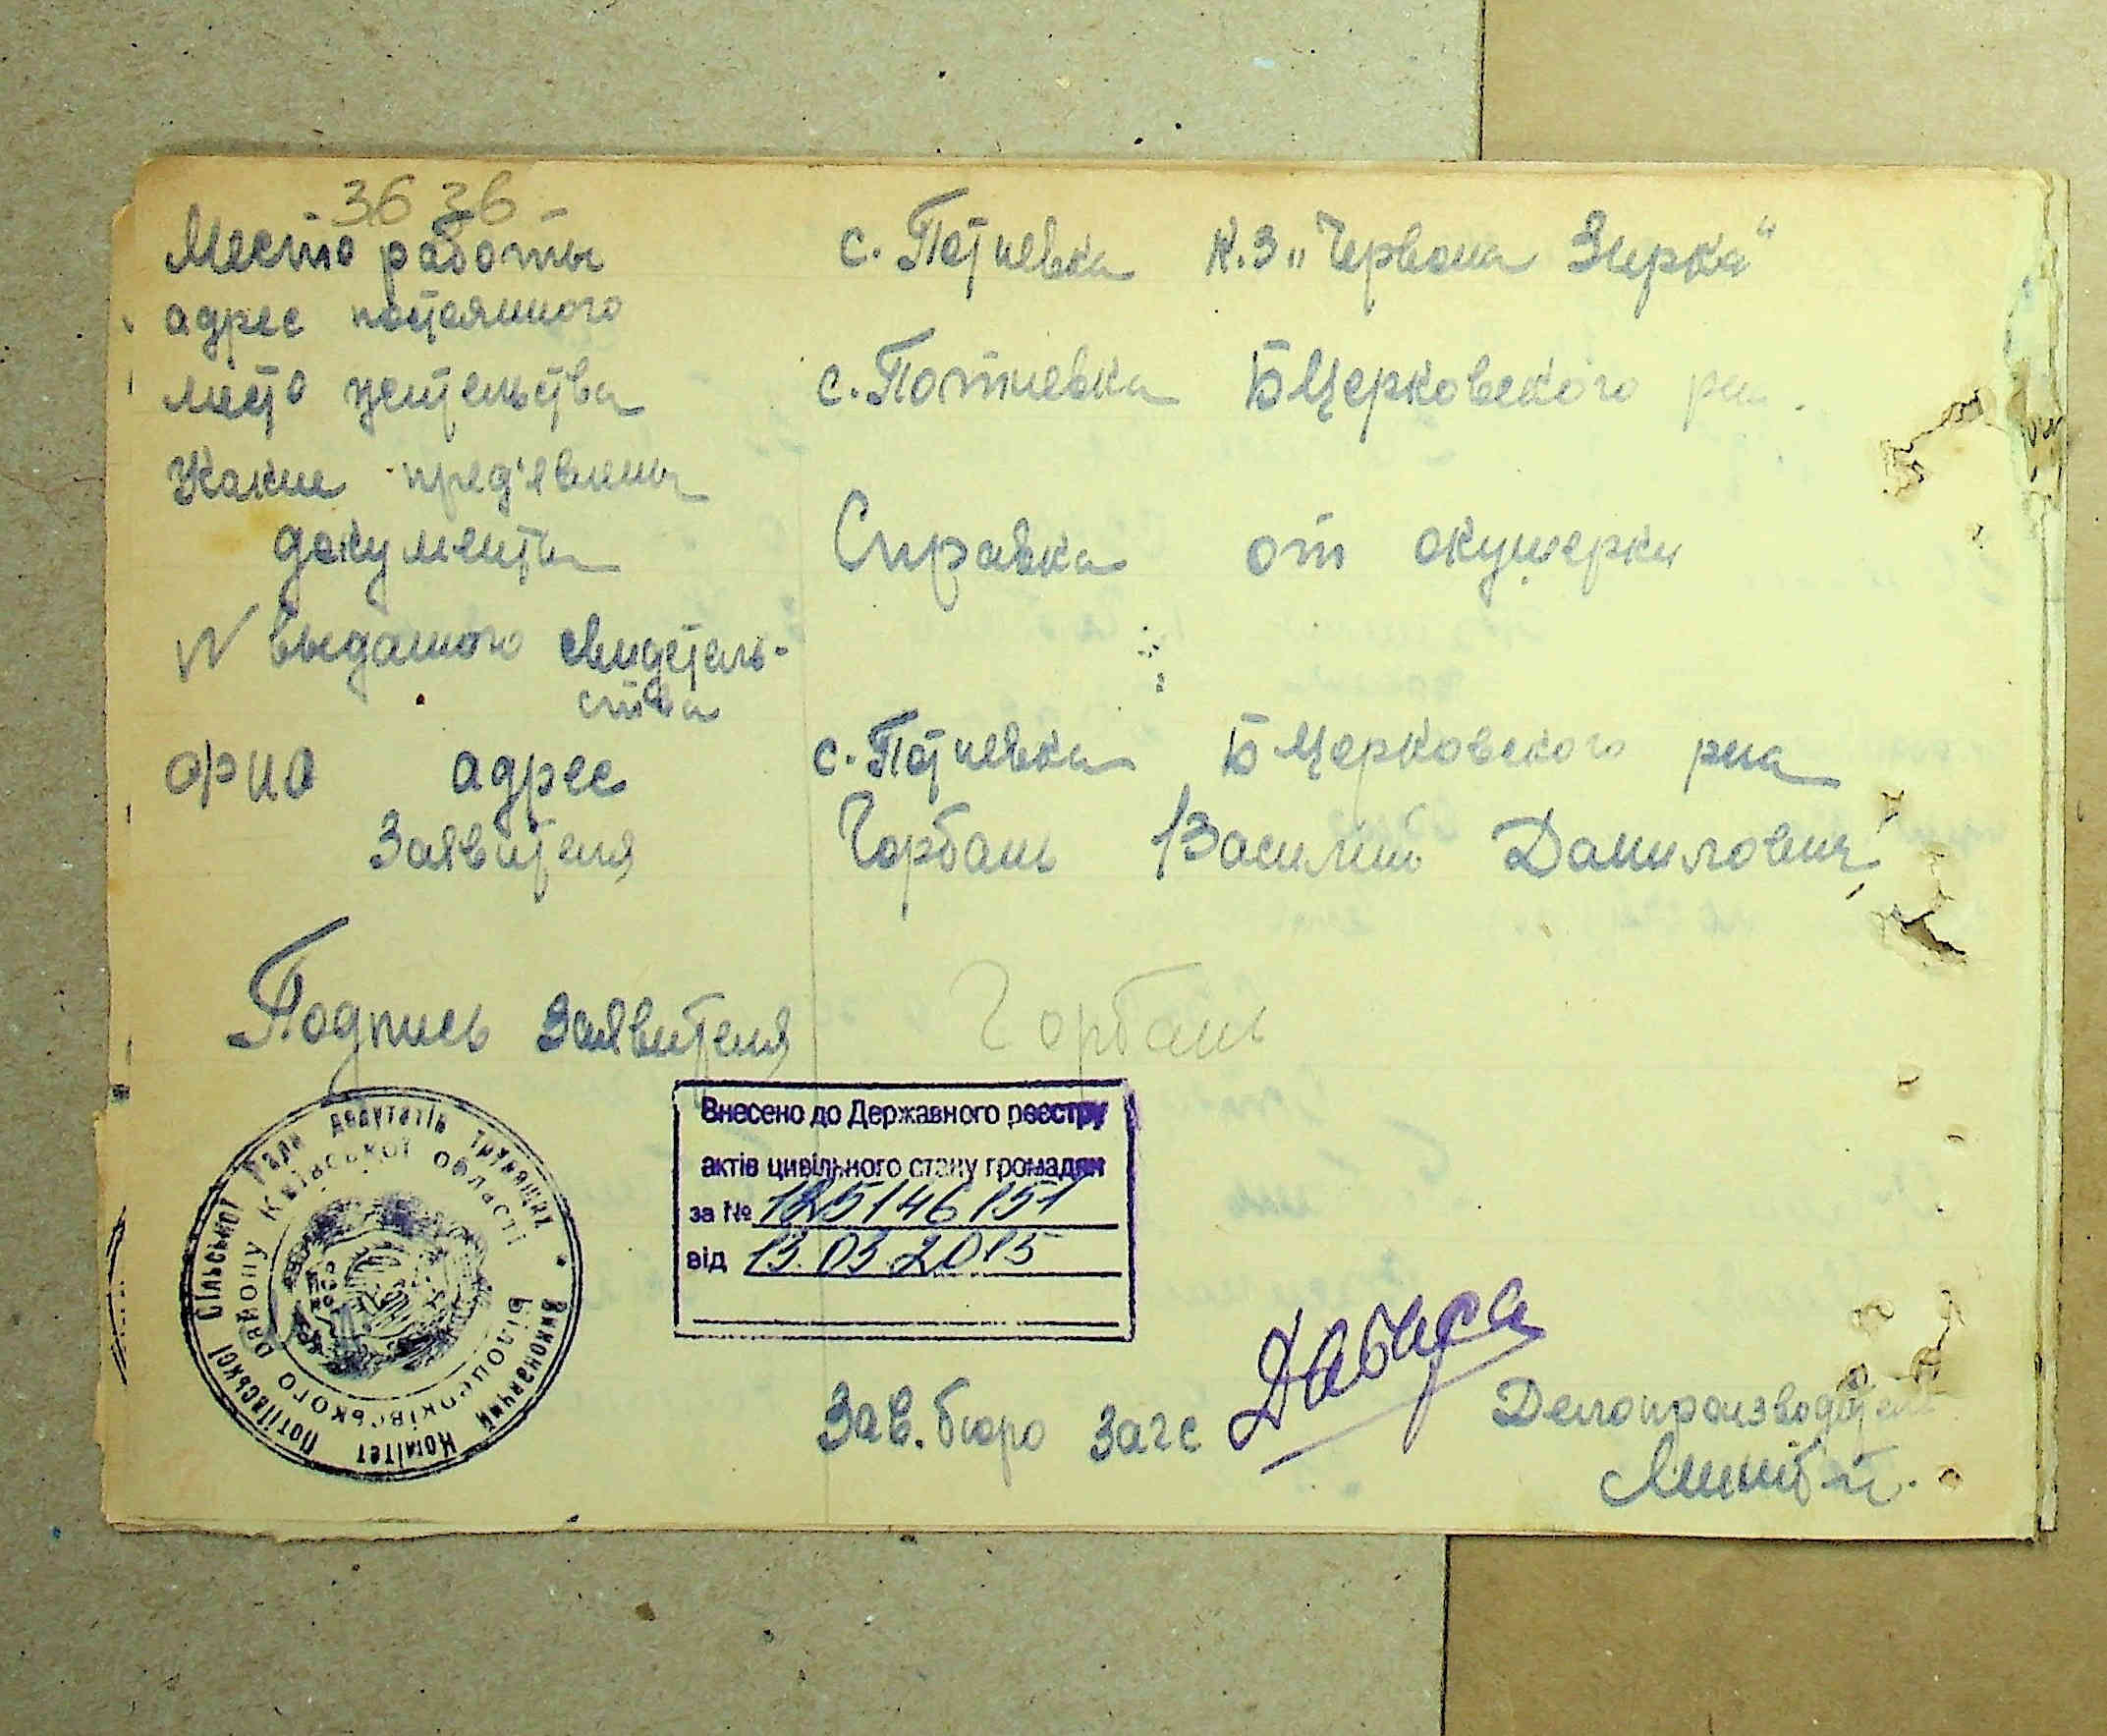 3636
Место работы с. Потиевка К.З „Червона Зирка"
адрес постоянного
место жительства с. Потиевка БЦерковского р-на
Какие пред'явлены
документы Справка от акушерки
N выданого свидетель-
ства
ФИО адрес с. Потиевка БЦерковского р-на
Заявителя Горбань Василий Данилович
Подпись Заявителя Горбань
Внесено до Державного реєстру
актів цивільного стану громадян
за №
від 13.03.2015
Виконавчий Комітет Потіївської Сільської Ради депутатів трудящих
Білоцерківського району Київської області
Зав. бюро загс
Делопроизводитель